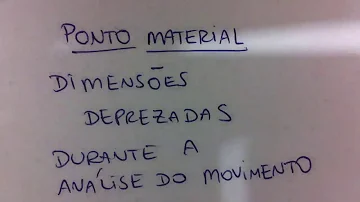 PONTO MATERIAL
DIMENSÕES
DEPREZADAS
DURANTE A
ANÁLISE DO MOVIMENTO